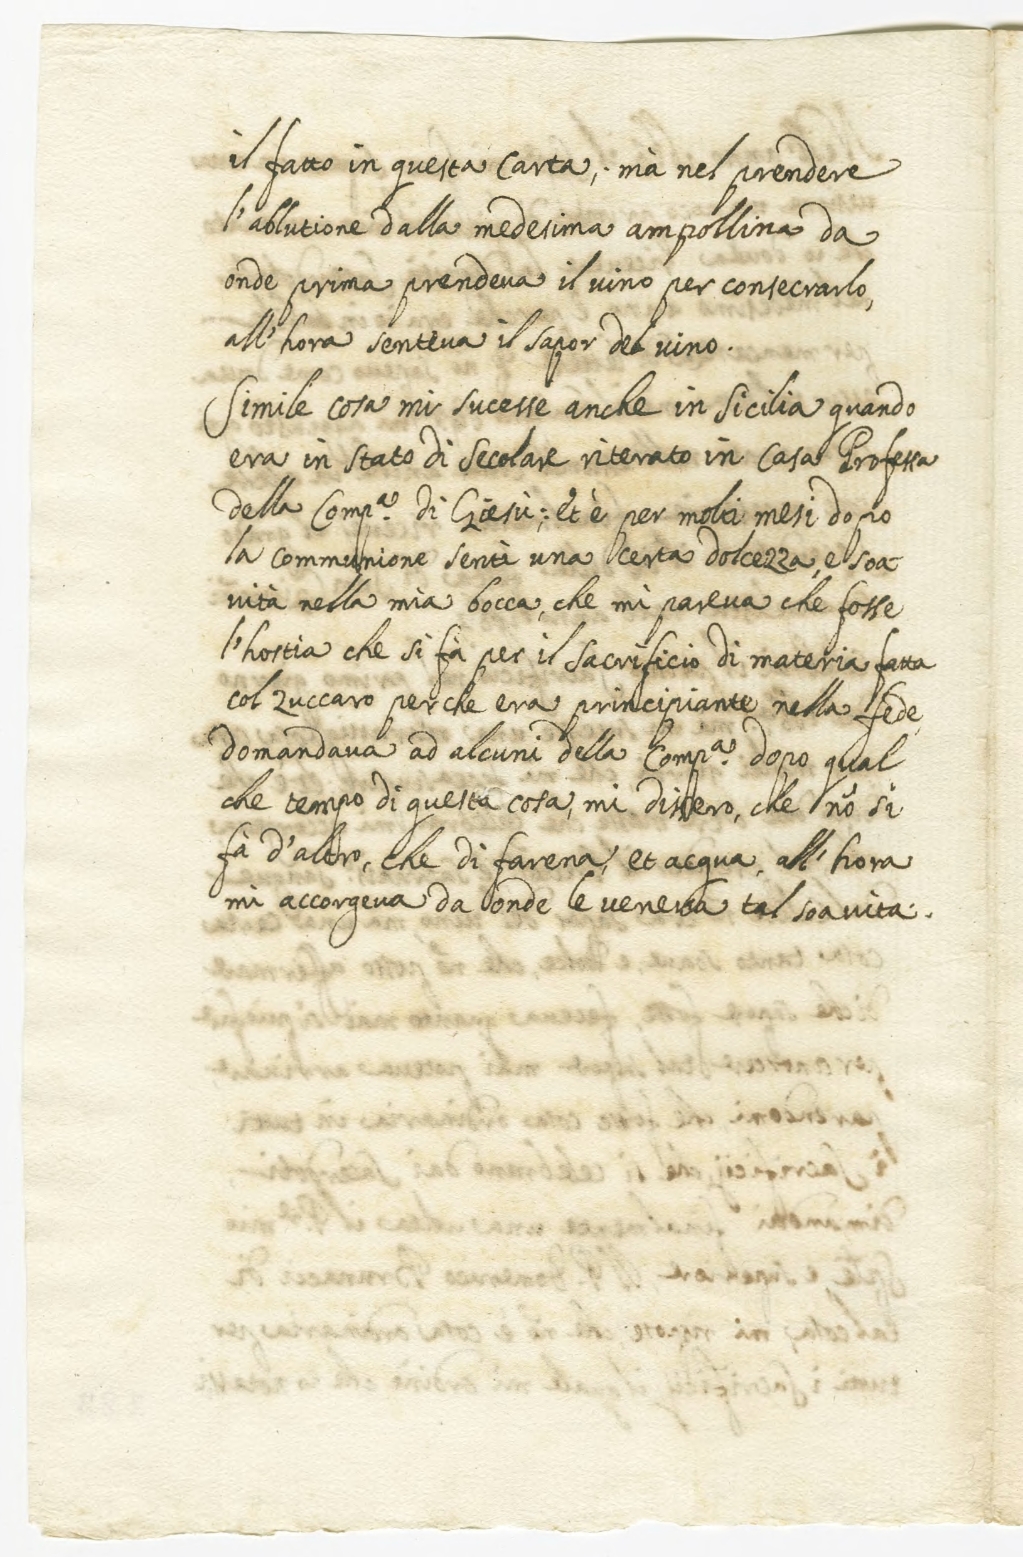 il fatto in questa Carta; mà nel prendere
l'ablutione dalla medesima ampollina da
onde prima prendeua il uino per consecrarlo,
all'hora senteua il sapor del uino.
Simile cosa mi sucesse anche in Sicilia quando
era in stato di Secolare riterato in Casa Professa
della Comp.ª di Giesù; et è per molti mesi dopo
la communione sentì una certa dolcezza, e soa
uità nella mia bocca, che mi pareua che fosse
l'hostia che si fà per il sacrificio di materia fatta
col zuccaro perche era principiante nella fede,
domandaua ad alcuni della Comp.ª dopo qual
che tempo di questa cosa, mi dissero, che nõ si
fà d'altro, che di farena, et acqua, all'hora
mi accorgeua da onde le veneua tal soauita.